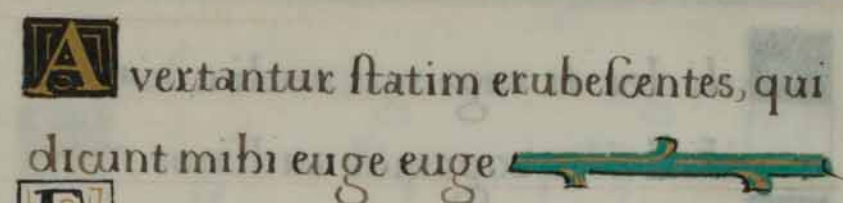 Avertantur ſtatim erubeſcentes, qui
dicunt mihi euge euge